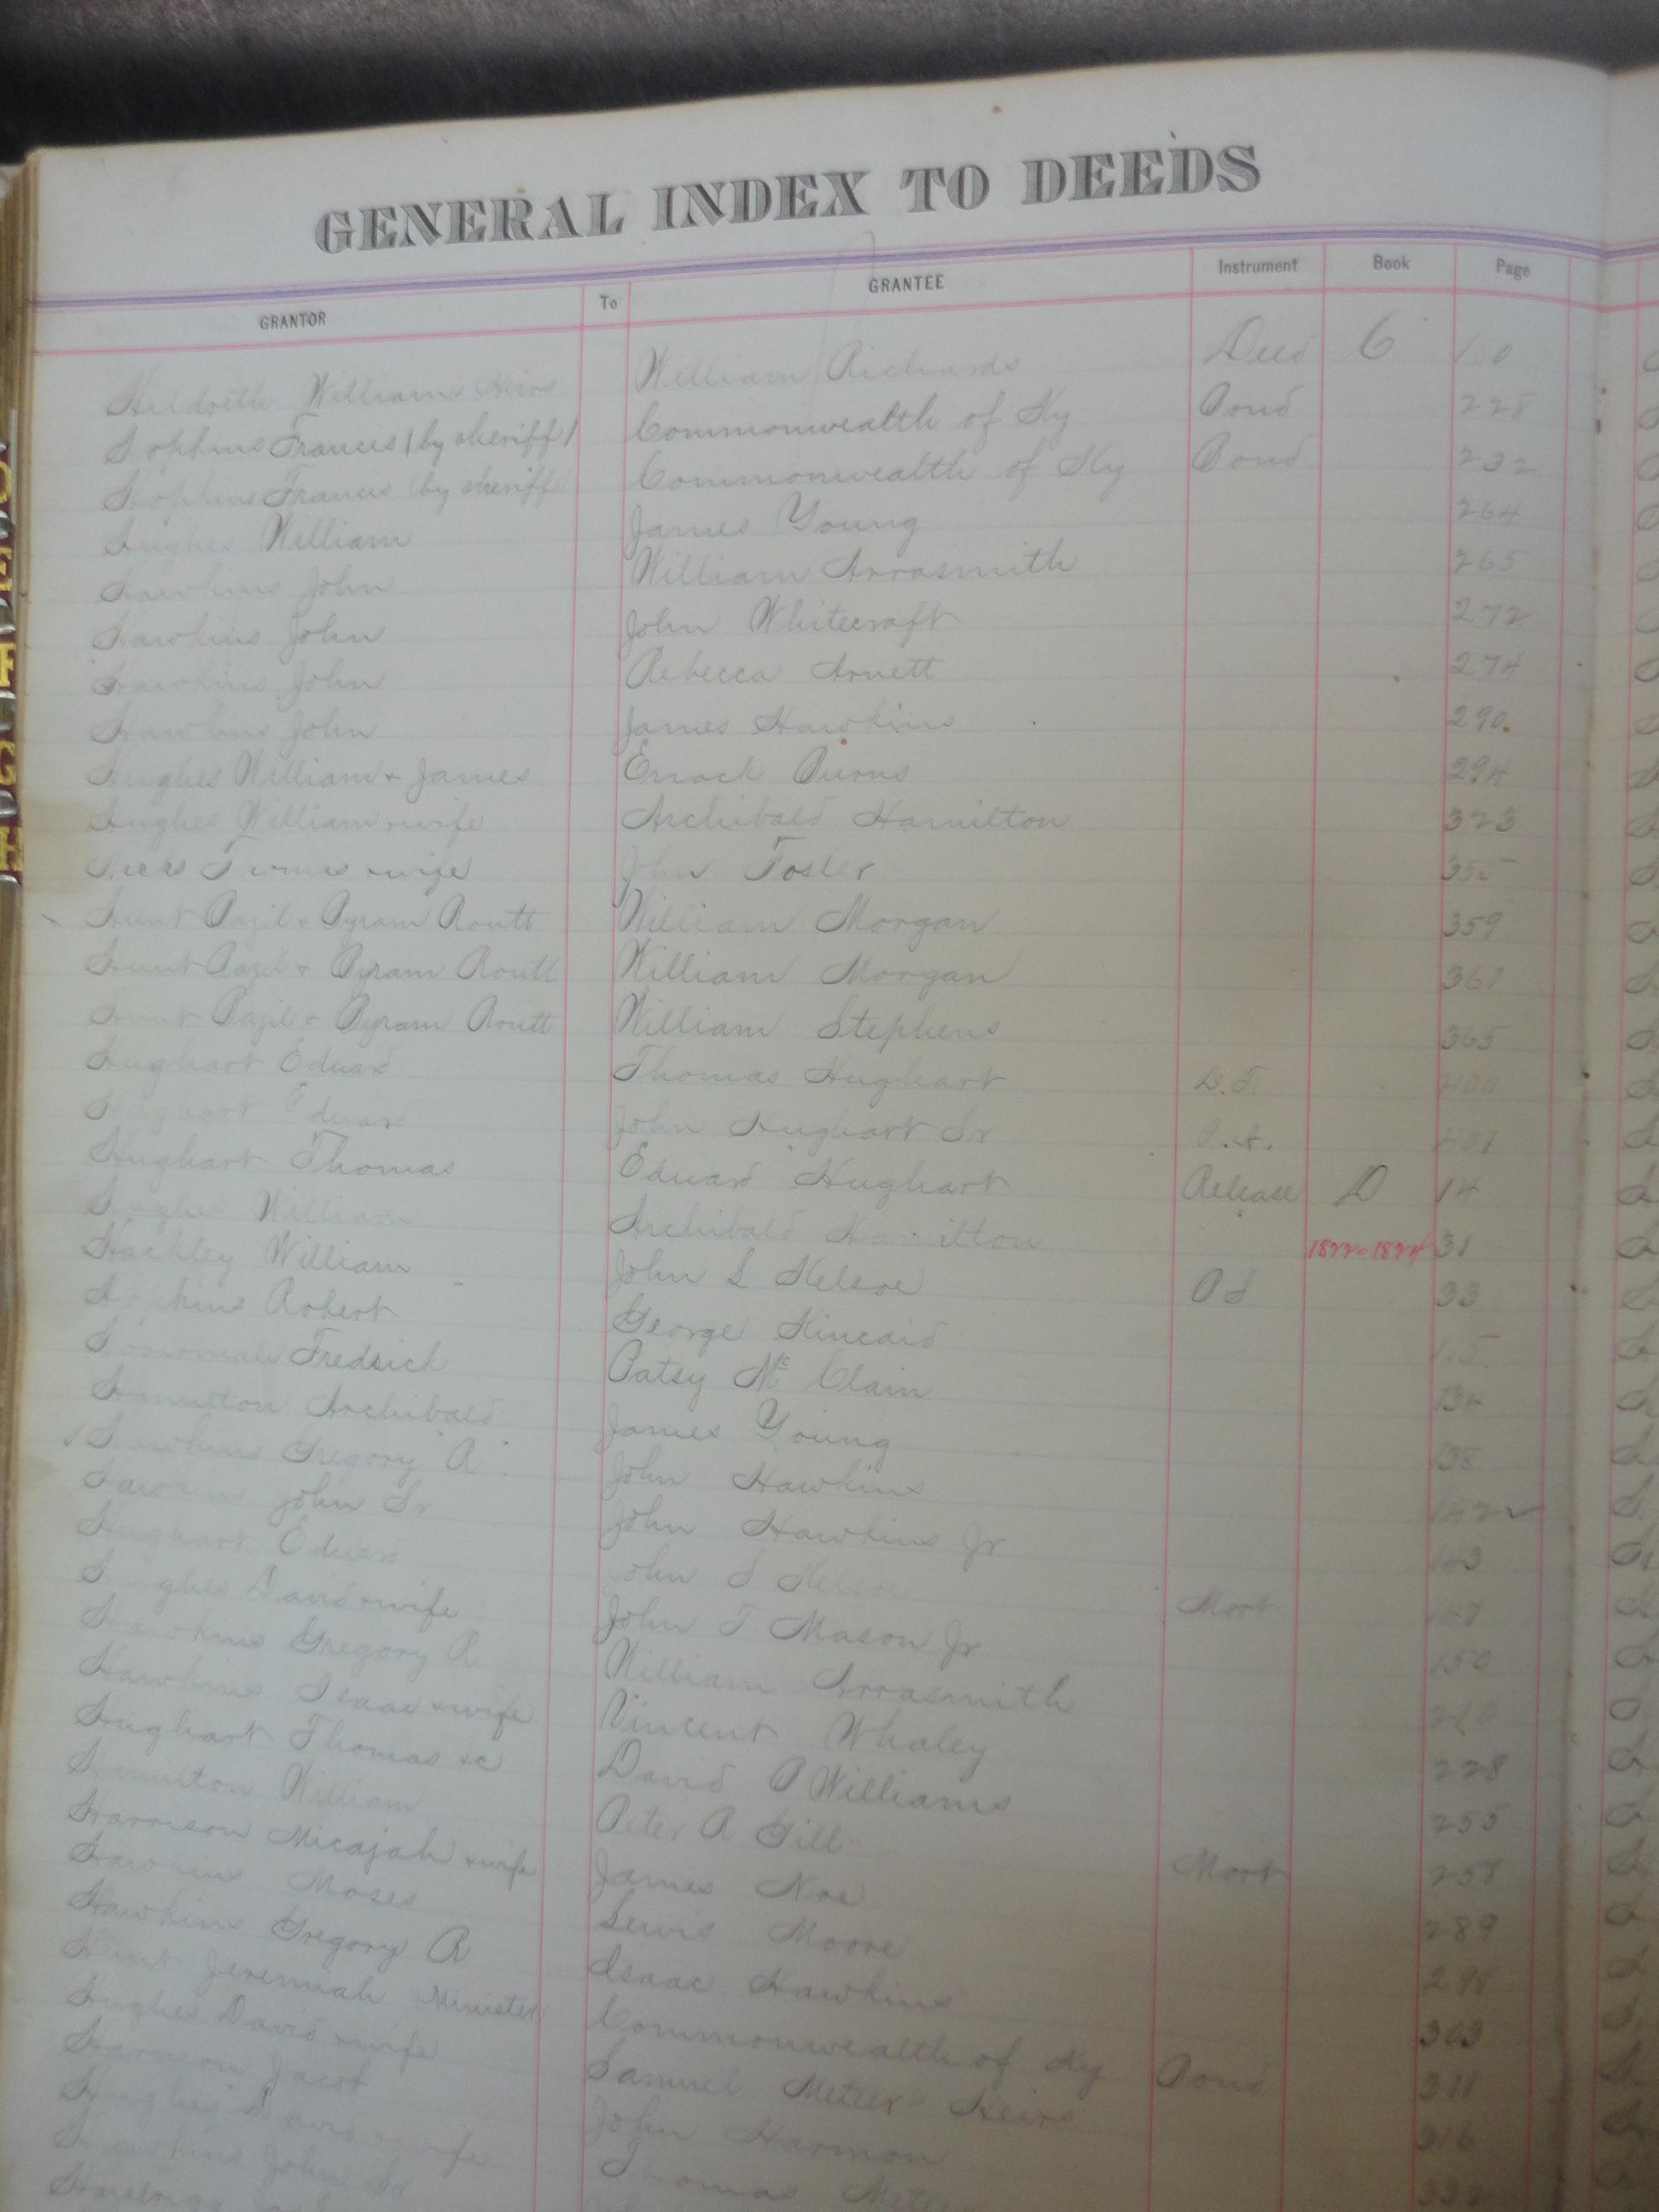 GENERAL INDEX TO DEEDS
GRANTOR To GRANTEE Instrument Book Page
Hildreth Williams Heirs William Richards Deed C 180
Hopkins Francis (by sheriff) Commonwealth of Ky Bond 228
Hopkins Francis (by sheriff) Commonwealth of Ky Bond 232
Hughes William James Young 264
Hawkins John William Arrasmith 265
Hawkins John John Whitecraft 272
Hawkins John Rebecca Arnett 274
Hawkins John James Hawkins 290.
Hughes William + James Enock Burns 294
Hughes William + wife Archibald Hamilton 323
+ wife John Foster 355
Hunt Bazil + Byram Routt William Morgan 359
Hunt Bazil + Byram Routt William Morgan 361
Hunt Bazil + Byram Routt William Stephens 365
Hughart Edward Thomas Hughart D.T. 400
Hughart Edward John Hughart Sr 401
Hughart Thomas Edward Hughart Release D 14
Hughes William Archibald Hamilton 1822-1824 31
Hackley William John S Kelsoe 33
Hopkins Robert George Kincaid
Fredrick Patsy McClain 134
Hamilton Archibald James Young 138
Hawkins Gregory R John Hawkins 142
Hawkins John Sr John Hawkins Jr 143
Hughart Edward John S Kelsoe Mort 147
Hughes David + wife John T Mason Jr 150
Hawkins Gregory R William Arrasmith 210
Hawkins Isaac + wife Vincent Whaley 228
Hughart Thomas &c David P Williams 255
Hamilton William Peter R Gill Mort 258
Harrison Micajah + wife James Noe 289
Hawkins Moses Lewis Moore 298
Hawkins Gregory R Isaac Hawkins 303
Hunt Jeremiah Minister Commonwealth of Ky Bond 311
Hughes David + wife Samuel Heirs 316
Harmon Jacob John Harmon 332
Hughes David + wife Thomas
Hawkins John Sr